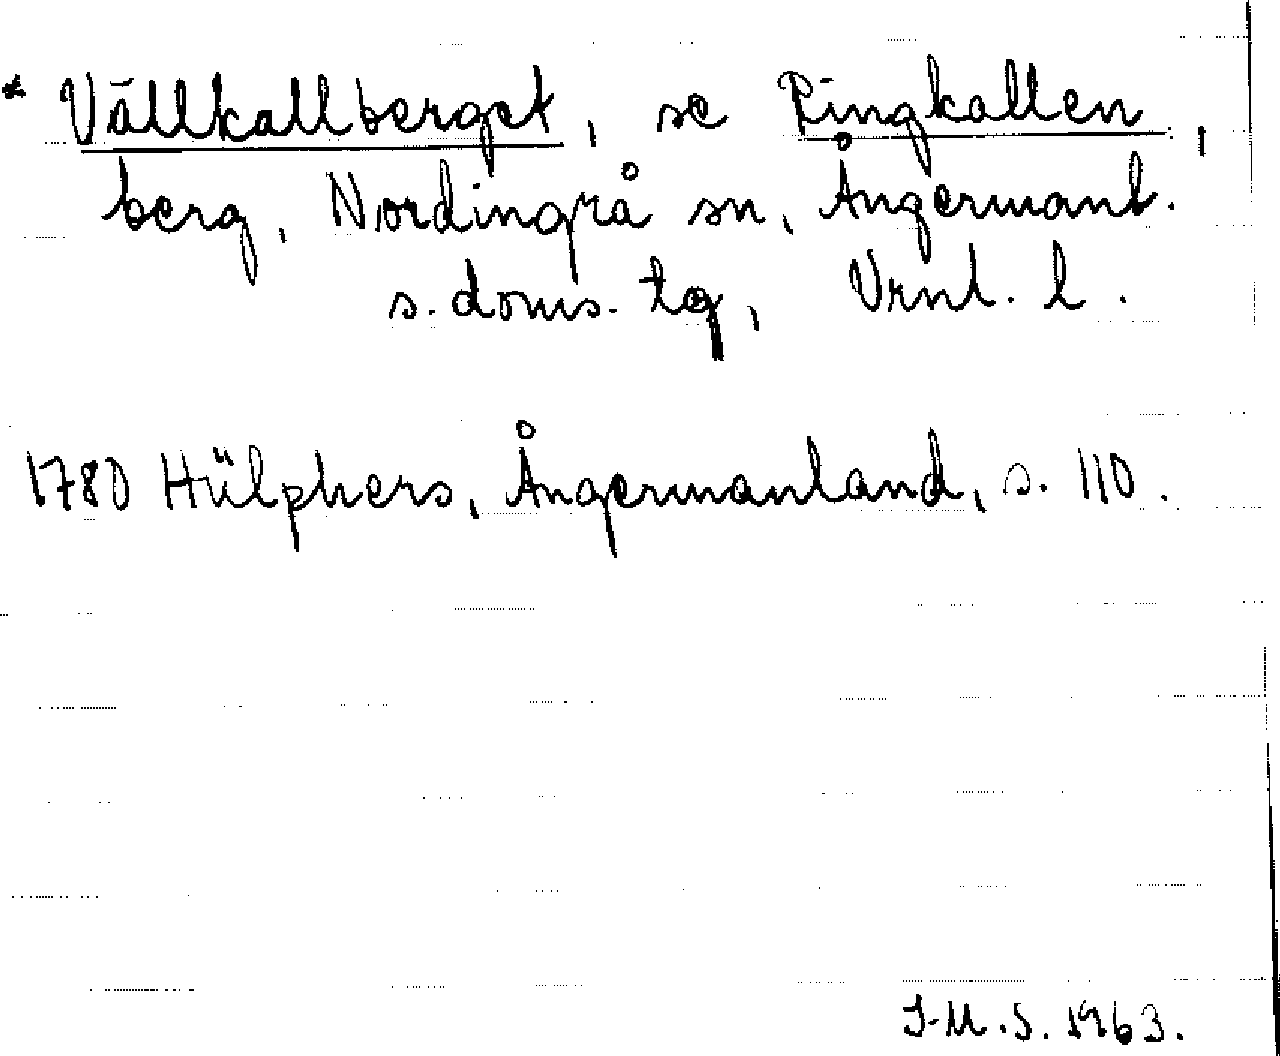 * Vällkallberget, se Ringkallen,
berg, Nordingrå sn, Ångermanl.
s. doms. tg, Vrnl. l.
1780 Hülphers, Ångermanland, s. 110.
I-M.S. 1963.